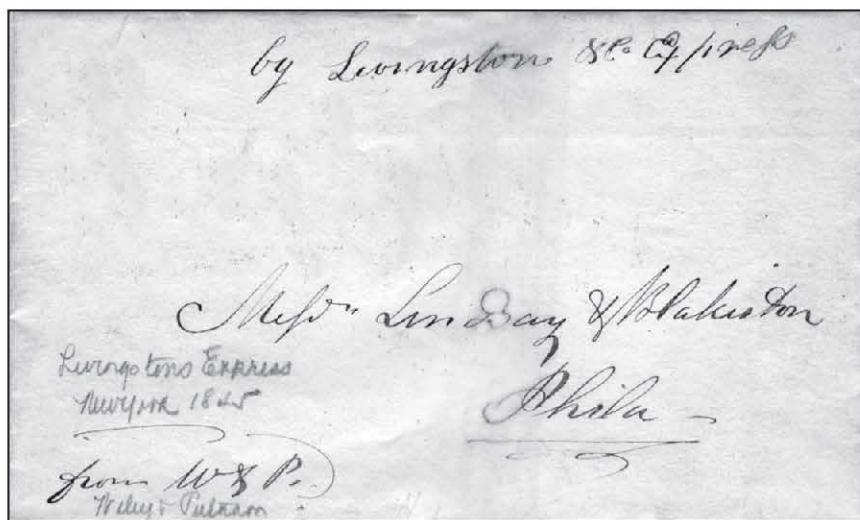 by Livingston & Co Express
Messrs Lindsay & Blakiston
Phila
Livingstons Express
New York 1845
from W & P.
Wiley & Putnam